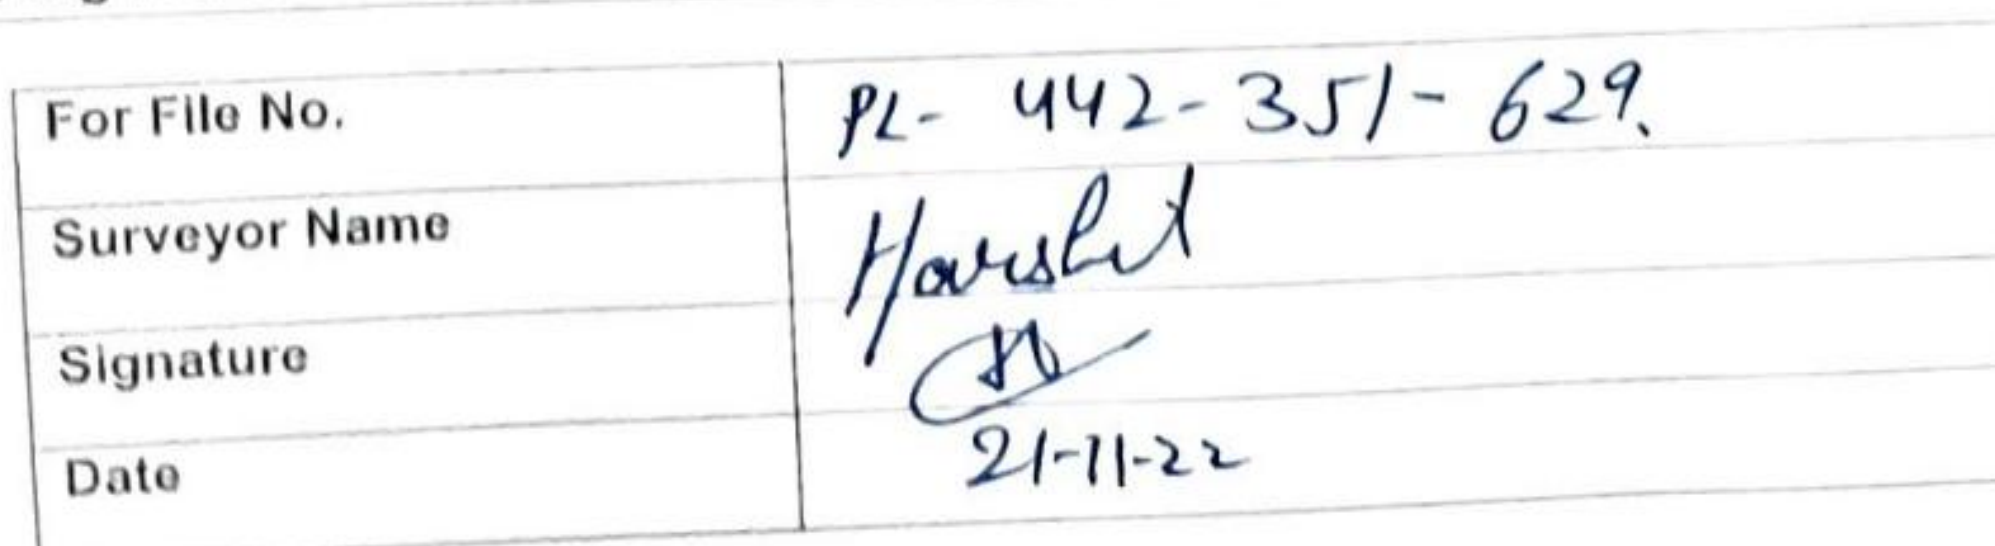 For File No. PL- 442-351-629.
Surveyor Name Harshit
Signature
Date 21-11-22